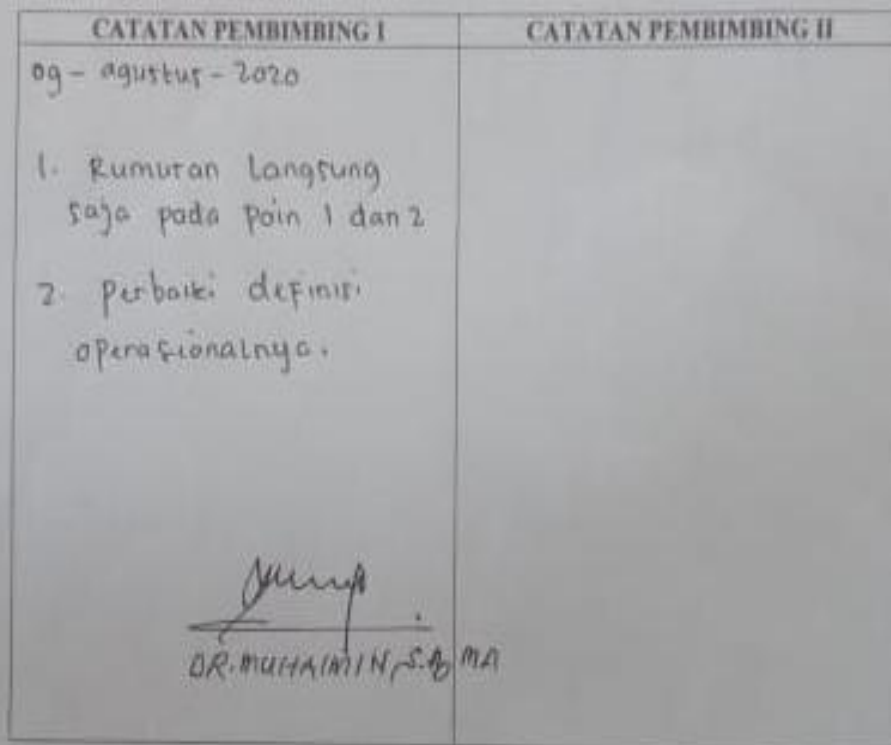 CATATAN PEMBIMBING I
CATATAN PEMBIMBING II
09 - agustus - 2020
1. Rumusan Langsung
saja pada Poin 1 dan 2
2. Perbaiki definisi
operasionalnya.
DR. MUHAIMIN, S.Ag MA